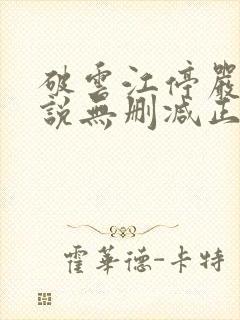 破雲江停嚴
說無刪減正
霍華德-卡特